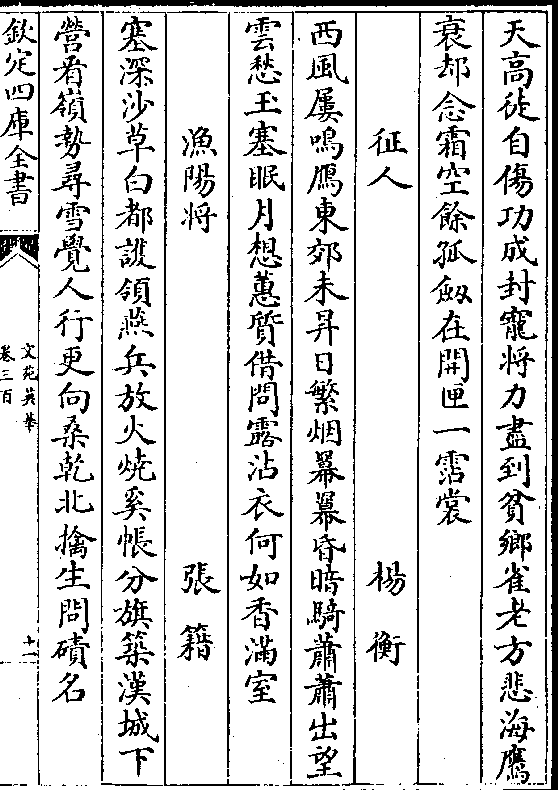 天高徒自傷功成封寵將力盡到貧鄉雀老方悲海鷹
衰却念霜空餘孤劔在開匣一霑裳
征人　楊衡
西風屢鳴鴈東郊未昇日繁烟羃羃昏暗騎蕭蕭出望
雲愁玉塞眠月想蕙質借問露沾衣何如香滿室
漁陽将　張籍
塞深沙草白都護領燕兵放火燒奚帳分旗築漢城下
營看嶺勢尋雪覺人行更向桑乾北擒生問磧名
欽定四庫全書
文苑英華
卷三百
十一